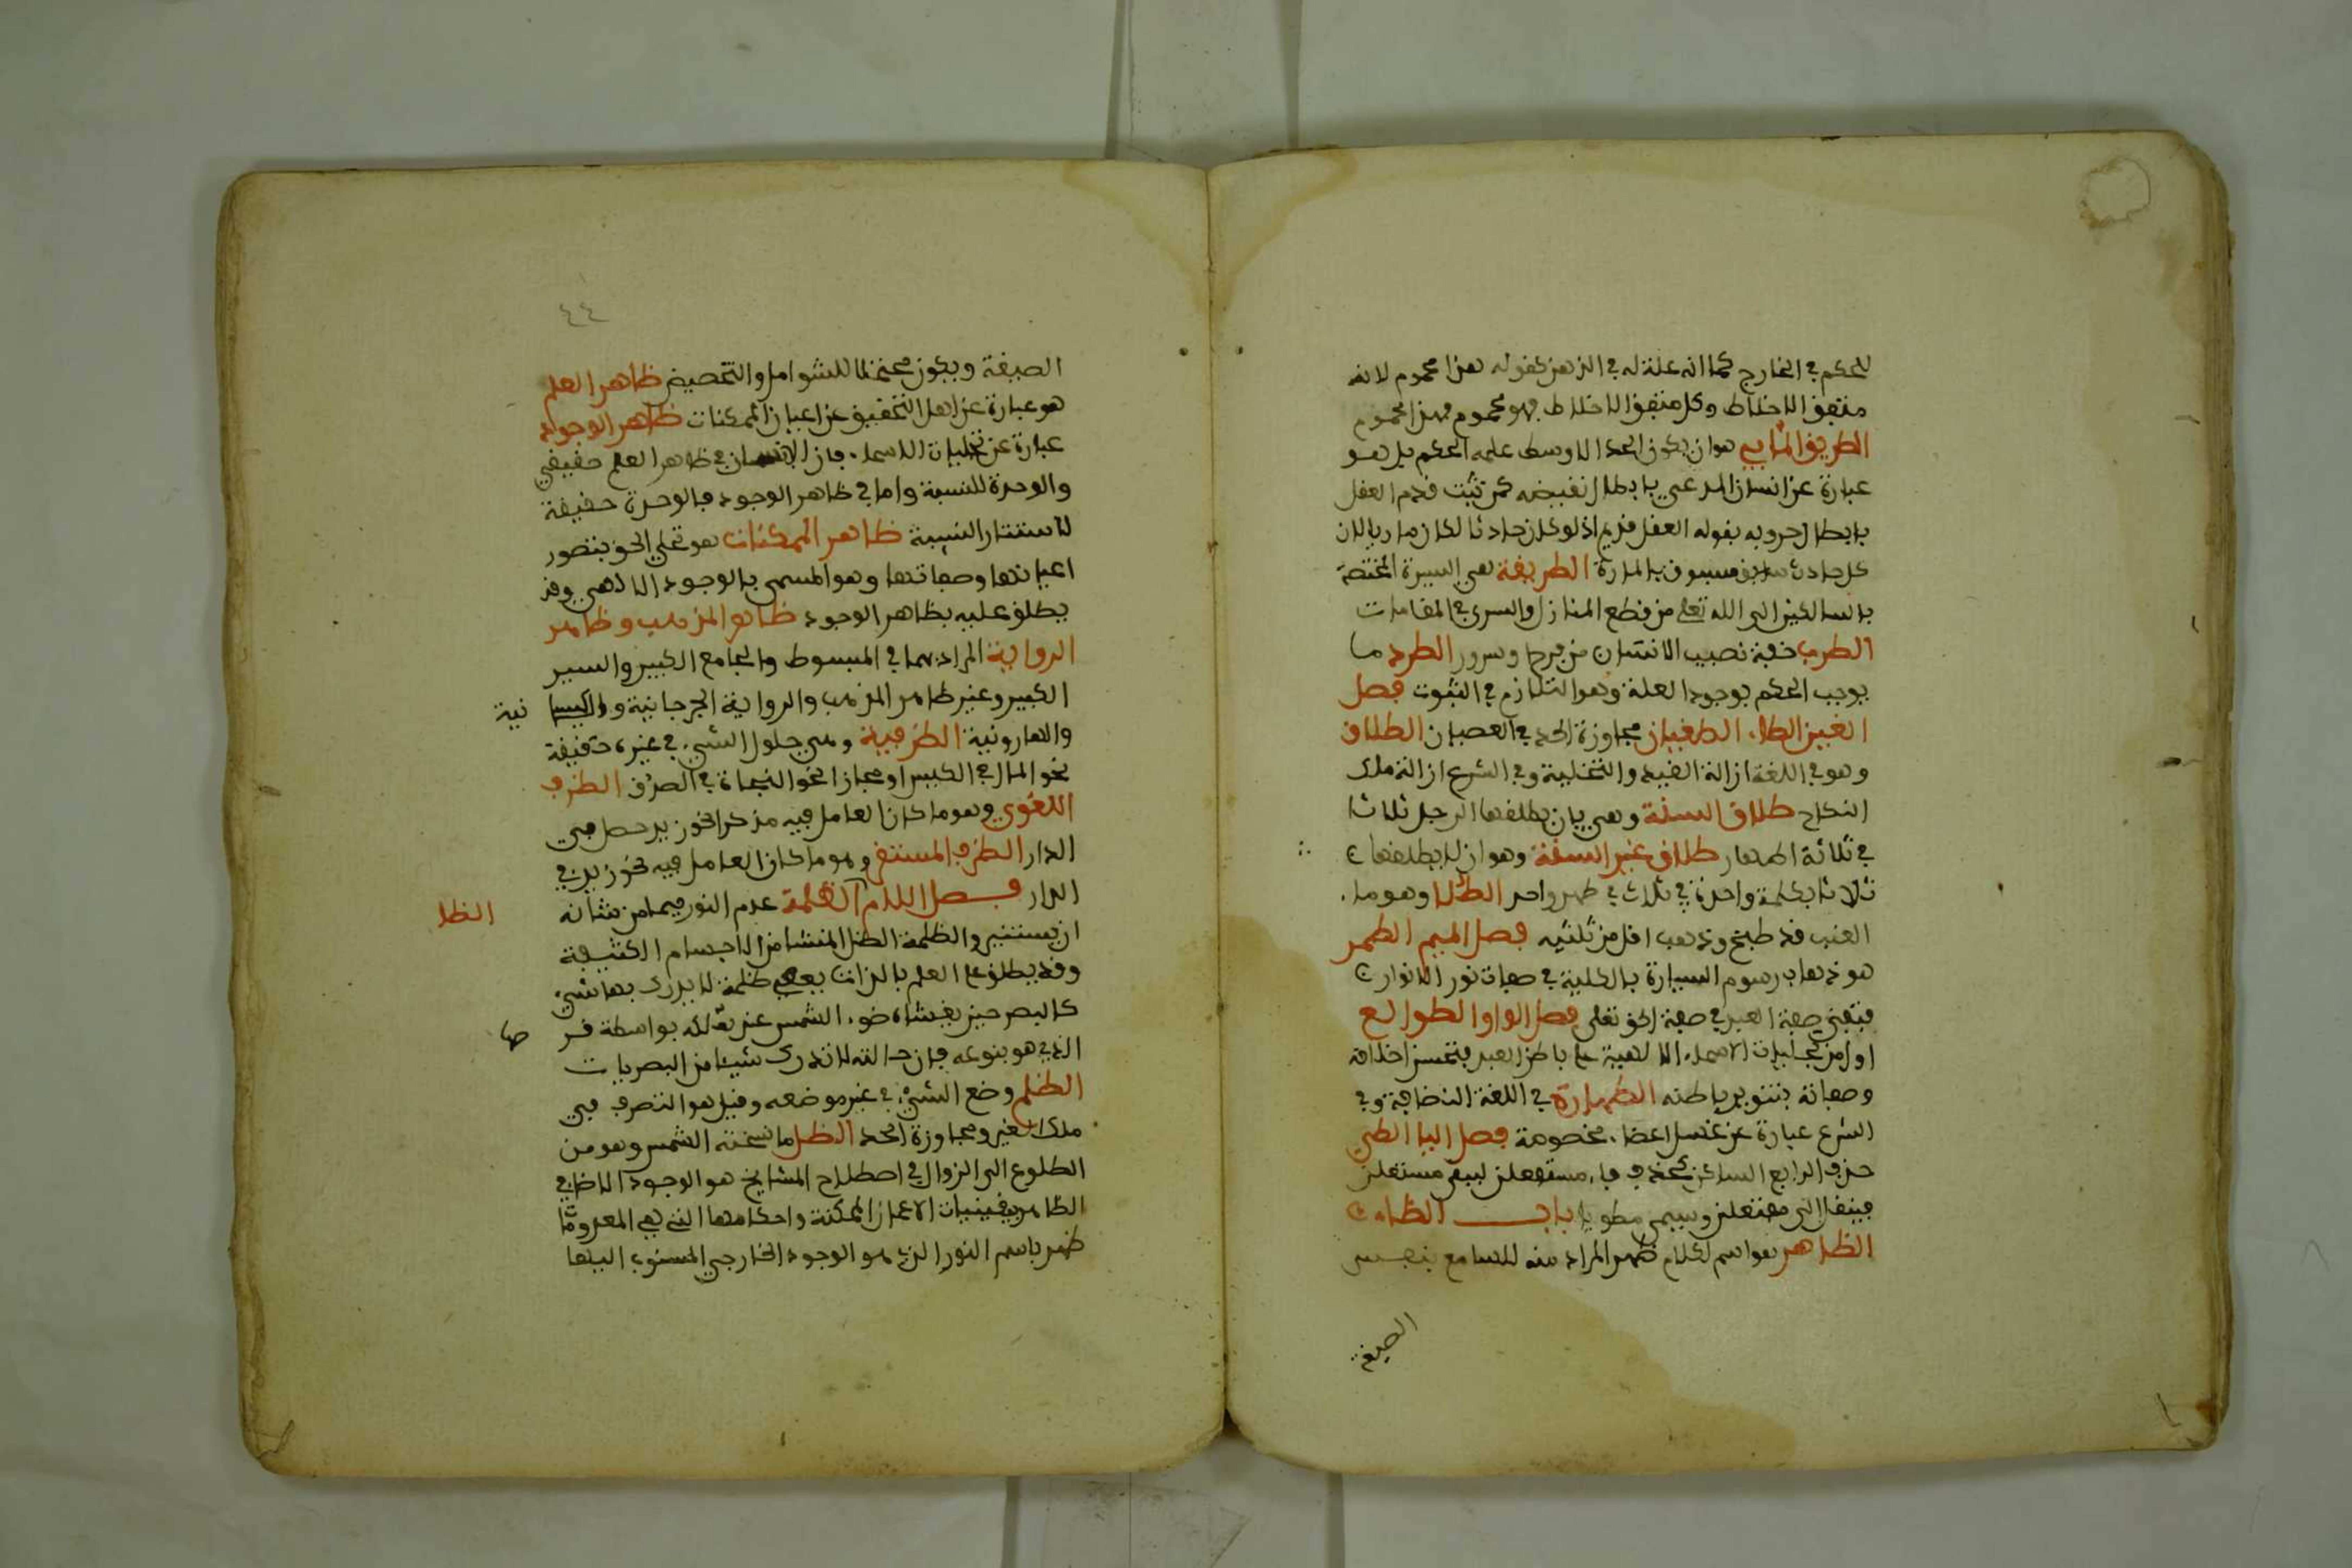 للحكم في الخارج كما انه علة له في الذهن كقوله هذا محموم لانه
متعفن الاخلاط وكل متعفن الاخلاط فهو محموم فهذا محموم
الطريق الماني هو ان يكون الحد الاوسط علة الحكم بل هو
عبارة عن اثبات المدعي بابطال نقيضه كمن يثبت قدم العقل
بابطال حدوثه بقوله العقل قديم اذ لو كان حادثا لكان ماديا لان
كل حادث مسبوق بالمادة الطريقة هي السيرة المختصة
بالسالكين الى الله تعلى من قطع المنازل والسرى في المقامات
الطرب خفة تصيب الانسان من فرح او سرور الطرد ما
يوجب الحكم بوجود العلة وهو التلازم في الثبوت فصل
الغين الطاء الطغيان مجاوزة الحد في العصيان الطلاق
وهو في اللغة ازالة القيد والتخلية وفي الشرع ازالة ملك
النكاح طلاق السنة وهي بان يطلقها الرجل ثلاثا
في ثلاثة اطهار طلاق غير السنة وهو ان لا يطلقها
ثلاثا بكلمة واحدة في ثلاث في طهر واحد الطلا وهو ما
العنب قد طبخ وذهب اقل من ثلثيه فصل الميم الطمر
هو ذهاب رسوم السيارة بالكلية في صفات نور الانوار
فتفنى صفة العبد في صفة الحق تعلى فصل الواو الطوالع
اول من تجليات الاسماء الالهية على باطن العبد فتحسن اخلاقه
وصفاته بتنوير باطنه الطهارة في اللغة النظافة وفي
الشرع عبارة عن غسل اعضاء مخصوصة فصل اليا الطي
حذف الرابع الساكن كحذف فاء مستفعلن ليبقى مستعلن
فينقل الى مفتعلن ويسمى مطويا باب الظاء
الظاهر هو اسم لكلام ظهر المراد منه للسامع بنفس
الصيغة
٤٤
الصيغة ويكون محتملا للشوامل والتخصيص ظاهر العلم
هو عبارة عن اهل التحقيق عن اعيان الممكنات ظاهر الوجود
عبارة عن تجليات الاسماء فان الامتياز في ظاهر العلم حقيقي
والوحدة للنسبة واما في ظاهر الوجود فالوحدة حقيقة
لاستتار النسبة ظاهر الممكنات هو تجلي الحق بتصور
اعيانها وصفاتها وهو المسمى بالوجود الالهي وقد
يطلق عليه بظاهر الوجود ظاهر المذهب وظاهر
الرواية المراد بهما في المبسوط والجامع الكبير والسير
الكبير وغير ظاهر المذهب والرواية الجرجانية والكيسا نية
والهارونية الظرفية وهي حلول الشيء في غيره حقيقة
نحو المال في الكيس او مجازا نحو النجاة في الصدق الظرف
اللغوي وهو ما كان العامل فيه مذكرا نحو زيد حصل في
الدار الظرف المستقر وهو ما كان العامل فيه نحو زيد في
الدار فصل اللام الظلمة عدم النور فيما من شانه
الظلا
ان يستنير والظلمة الظل المنشا من الاجسام الكثيفة
وقد يطلق على العلم بالذات ظلمة لا يدرك بها شيء
كالبصر حين يغشاه ضوء الشمس عند تعلقه بواسطة قر صها
الذي هو ينبوعه فان حالته لا تدرك شيئا من البصريات
الظلم وضع الشيء في غير موضعه وقيل هو التصرف في
ملك الغير ومجاوزة الحد الظل ما نسخته الشمس وهو من
الطلوع الى الزوال في اصطلاح المشايخ هو الوجود الاضافي
الظاهر بتعينات الاعيان الممكنة واحكامها التي هي المعدومات
ظهر باسم النور الذي هو الوجود الخارجي المنسوب اليها